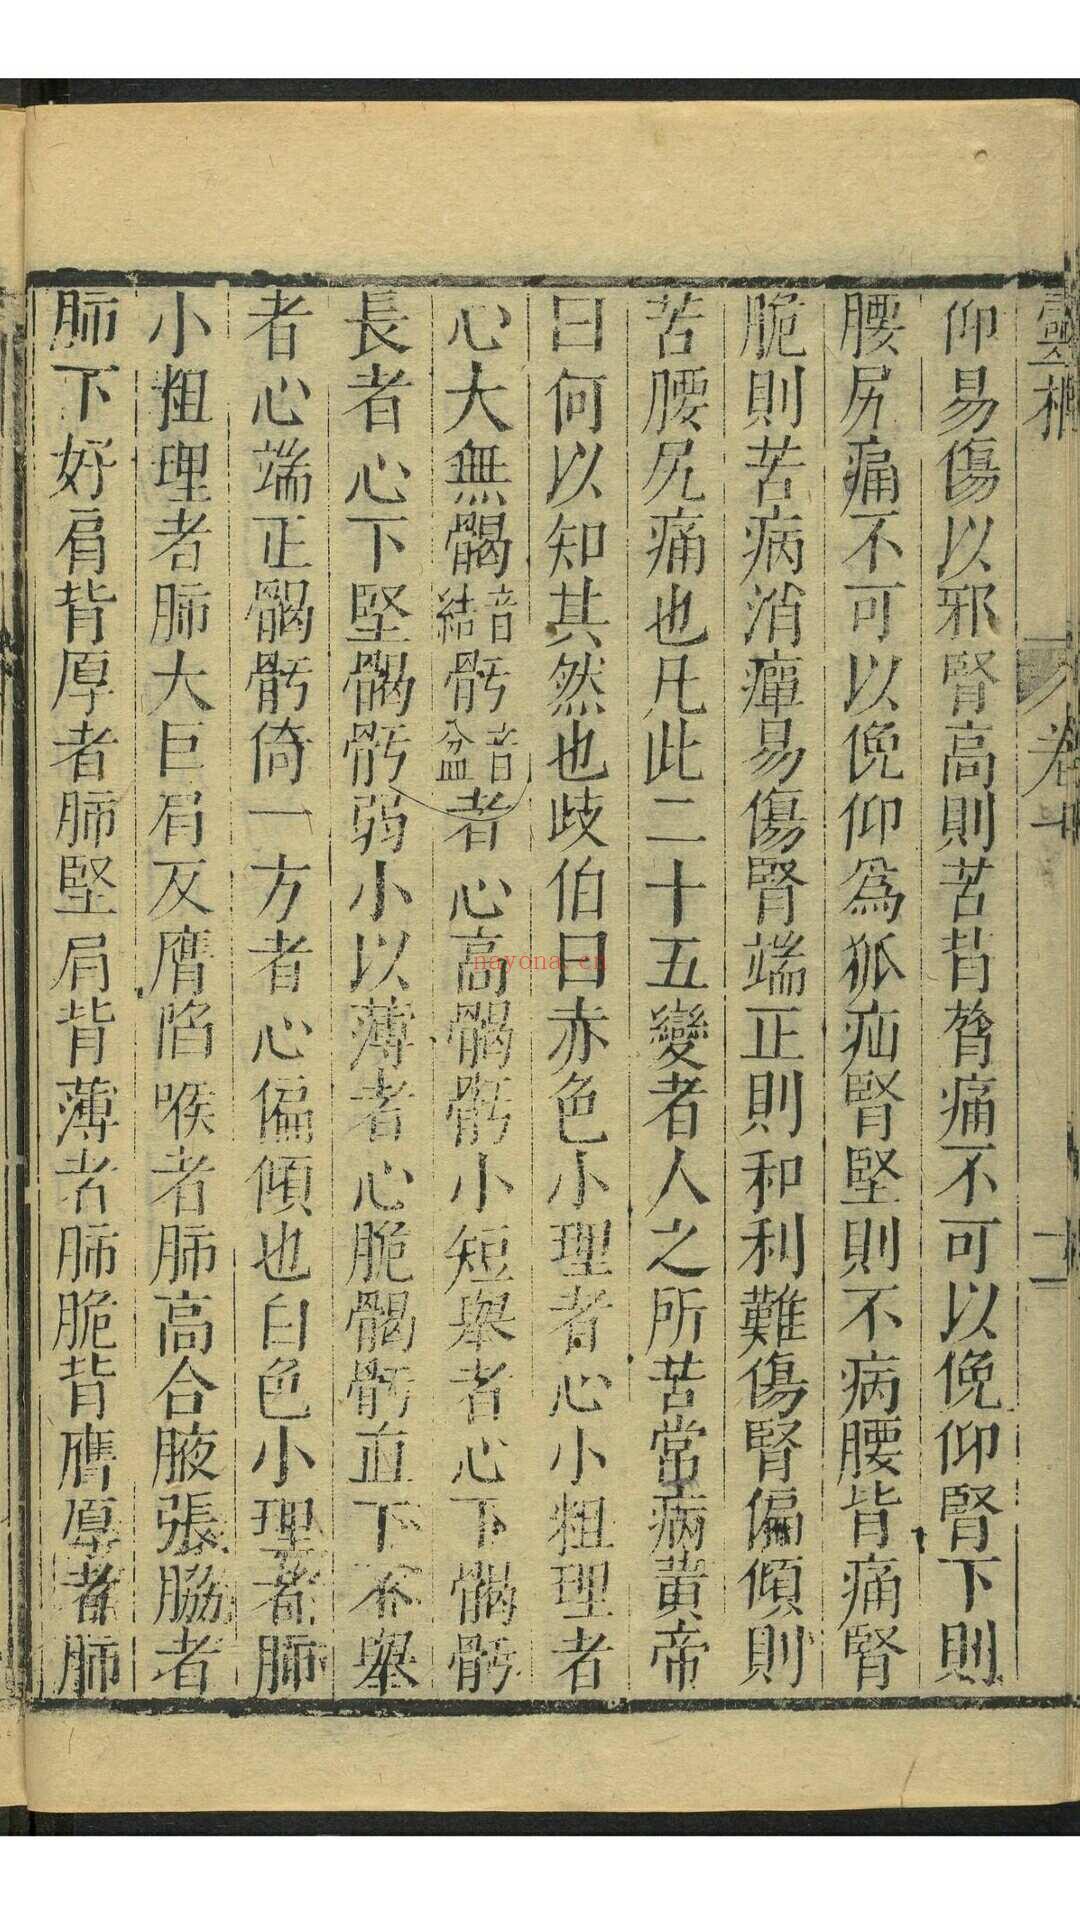 靈樞 卷十 十一
仰易傷以邪腎高則苦背膂痛不可以俛仰腎下則
腰尻痛不可以俛仰爲狐疝腎堅則不病腰背痛腎
脆則苦病消癉易傷腎端正則和利難傷腎偏傾則
苦腰尻痛也凡此二十五變者人之所苦常病黄帝
曰何以知其然也歧伯曰赤色小理者心小粗理者
心大無𩩲音結𩨗音盆者心高𩩲𩨗小短舉者心下𩩲𩨗
長者心下堅𩩲𩨗弱小以薄者心脆𩩲𩨗直下不舉
者心端正𩩲𩨗倚一方者心偏傾也白色小理者肺
小粗理者肺大巨肩反膺陷喉者肺高合腋張脇者
肺下好肩背厚者肺堅肩背薄者肺脆背膺厚者肺
nayona.cn